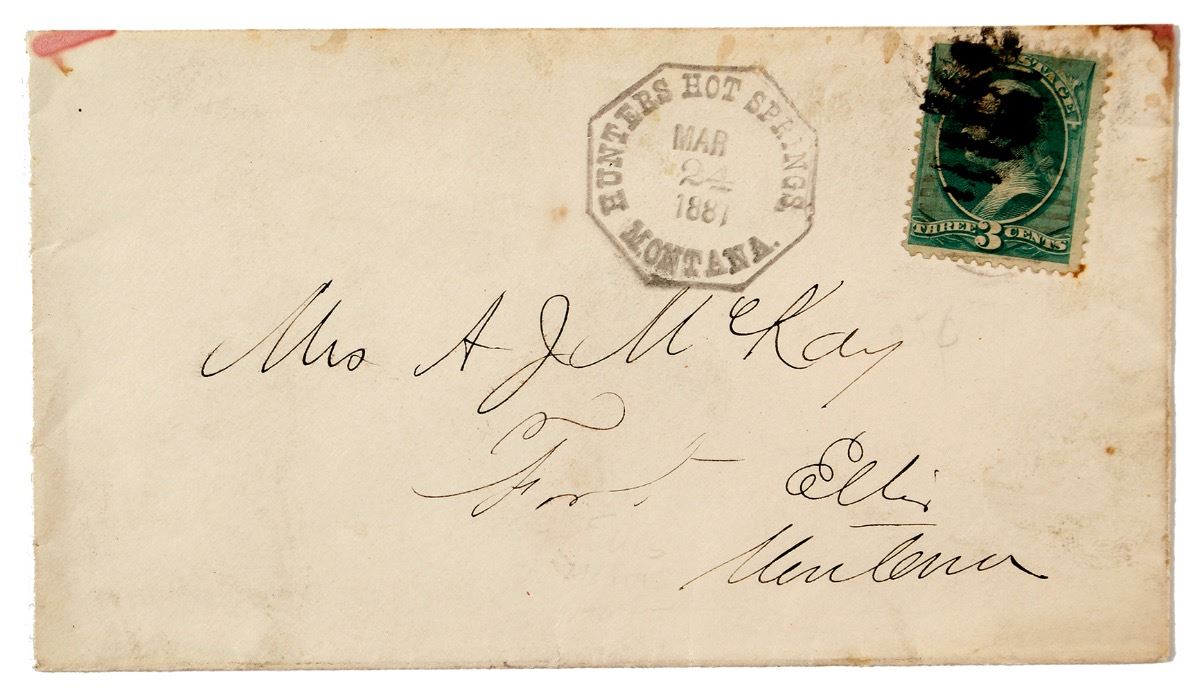 HUNTERS HOT SPRINGS
MAR
24
1881
MONTANA.
STAGE
THREE 3 CENTS
Mrs A J McKay
Fort Ellis
Montana